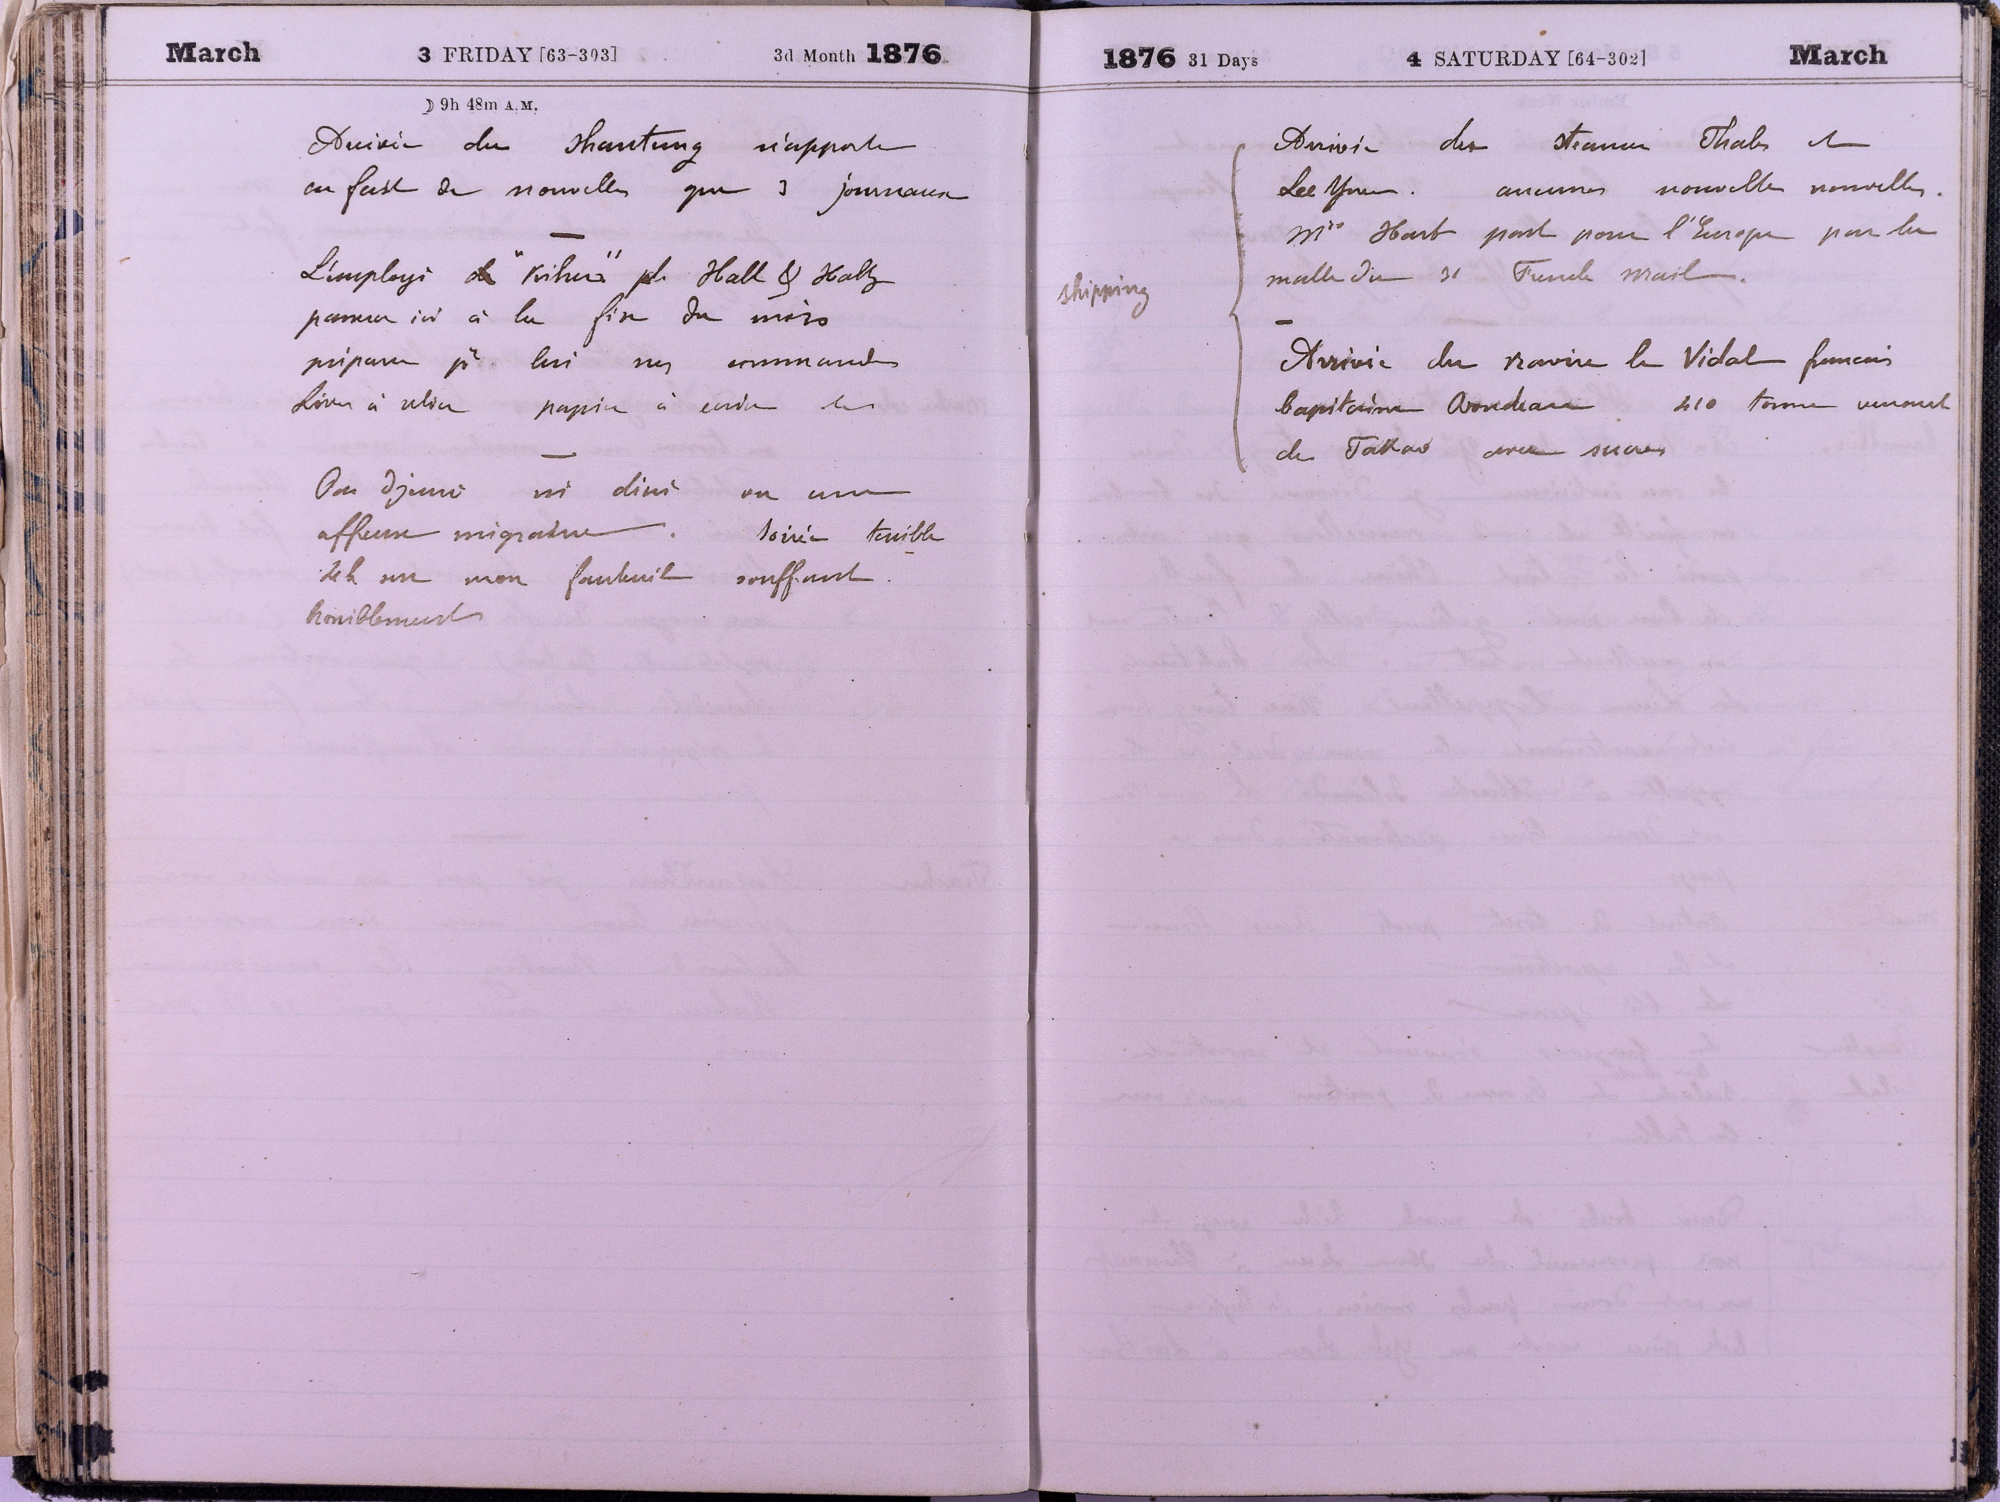 March 3 FRIDAY [63-303] 3d Month 1876
☽ 9h 48m A.M.
Arrivée du Shantung n'apporte
en fait de nouvelles que 3 journaux
L'employé de Hall & Holtz
passera ici à la fin du mois
préparer pr lui nos commandes
Livres à relier papier à écrire etc
Pas déjeuné ni diné eu une
affreuse migraine. Soirée terrible
seul sur mon fauteuil souffrant
horriblement
1876 31 Days 4 SATURDAY [64-302] March
Arrivée des steamer Thales et
Lee Yuen. aucunes nouvelles nouvelles.
Mrs Hart part pour l'Europe par la
malle du 31 French Mail.
shipping
Arrivée du navire le Vidal français
Capitaine 410 tonnes venant
de Takao avec sucres